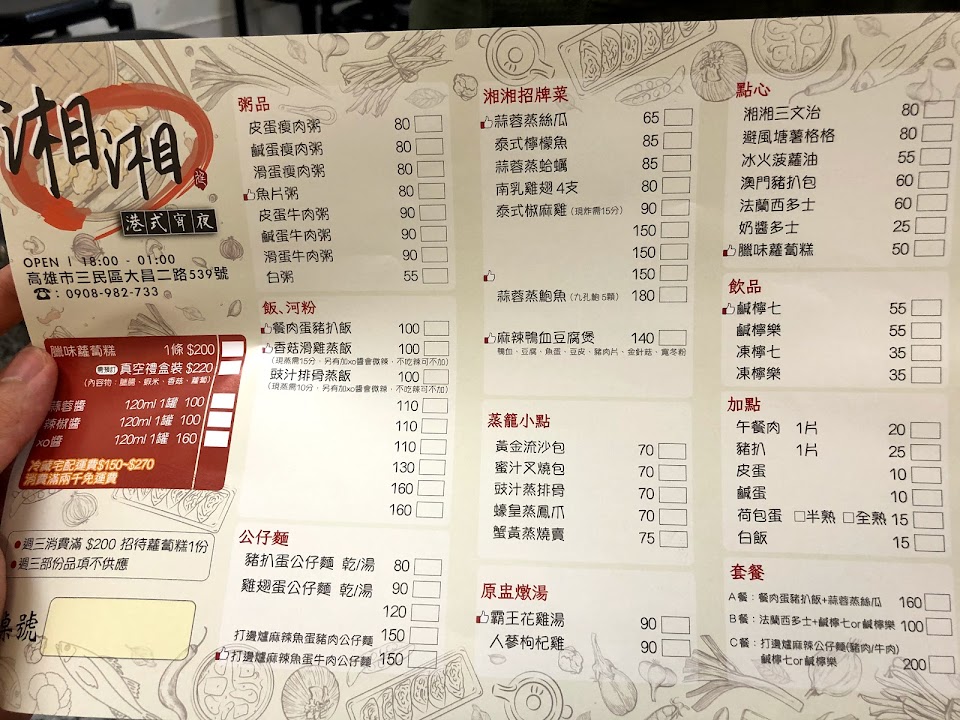 湘湘
港式宵夜
OPEN | 18:00 - 01:00
高雄市三民區大昌二路539號
☎: 0908-982-733
臘味蘿蔔糕 1條 $200
需預訂 真空禮盒裝 $220
(內容物:臘腸、蝦米、香菇、蘿蔔)
蒜蓉醬 120ml 1罐 100
辣椒醬 120ml 1罐 100
xo醬 120ml 1罐 160
冷藏宅配運費$150~$270
消費滿兩千免運費
●週三消費滿 $200 招待蘿蔔糕1份
●週三部份品項不供應
桌號
粥品
皮蛋瘦肉粥 80
鹹蛋瘦肉粥 80
滑蛋瘦肉粥 80
魚片粥 80
皮蛋牛肉粥 90
鹹蛋牛肉粥 90
滑蛋牛肉粥 90
白粥 55
飯、河粉
餐肉蛋豬扒飯 100
香菇滑雞蒸飯 100
(現蒸需15分、另有加xo醬會微辣、不吃辣可不加)
豉汁排骨蒸飯 100
(現蒸需10分、另有加xo醬會微辣、不吃辣可不加)
110
110
110
130
160
160
公仔麵
豬扒蛋公仔麵 乾/湯 80
雞翅蛋公仔麵 乾/湯 90
120
打邊爐麻辣魚蛋豬肉公仔麵 150
打邊爐麻辣魚蛋牛肉公仔麵 150
湘湘招牌菜
蒜蓉蒸絲瓜 65
泰式檸檬魚 85
蒜蓉蒸蛤蠣 85
南乳雞翅 4支 80
泰式椒麻雞 (現炸需15分) 90
150
150
蒜蓉蒸鮑魚 (九孔鮑 5顆) 180
麻辣鴨血豆腐煲 140
鴨血、豆腐、魚蛋、豆皮、豬肉片、金針菇、寬冬粉
蒸籠小點
黃金流沙包 70
蜜汁叉燒包 70
豉汁蒸排骨 70
蠔皇蒸鳳爪 70
蟹黃蒸燒賣 75
原盅燉湯
霸王花雞湯 90
人蔘枸杞雞 90
點心
湘湘三文治 80
避風塘薯格格 80
冰火菠蘿油 55
澳門豬扒包 60
法蘭西多士 60
奶醬多士 25
臘味蘿蔔糕 50
飲品
鹹檸七 55
鹹檸樂 55
凍檸七 35
凍檸樂 35
加點
午餐肉 1片 20
豬扒 1片 25
皮蛋 10
鹹蛋 10
荷包蛋 □半熟 □全熟 15
白飯 15
套餐
A餐:餐肉蛋豬扒飯+蒜蓉蒸絲瓜 160
B餐:法蘭西多士+鹹檸七or鹹檸樂 100
C餐:打邊爐麻辣公仔麵(豬肉/牛肉)
鹹檸七or鹹檸樂 200